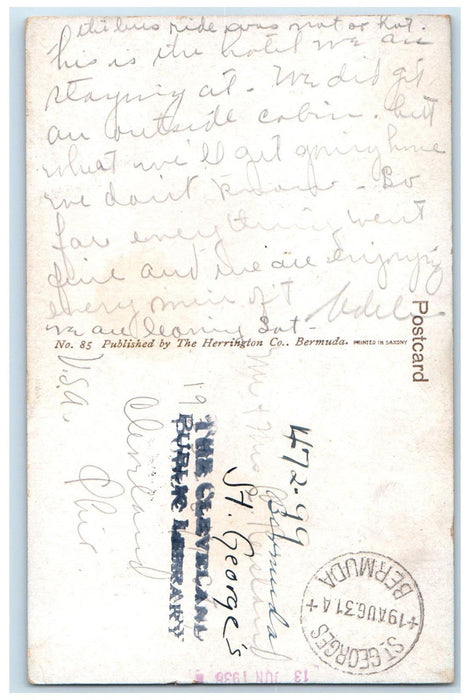 the bus ride was not so hot.
This is the hotel we are
staying at - We did get
an outside cabin - but
what we'll get going home
we don't know - So
far everything went
fine and we are enjoying
every min of it
we are leaving Sat -
Adel
Postcard
No. 85 Published by The Herrington Co., Bermuda. PRINTED IN SAXONY
Mr & Mrs
Cleveland
Ohio
U.S.A.
472-99
Bermuda
St. George's
THE CLEVELAND
PUBLIC LIBRARY
ST. GEORGES
19 AUG 31 A
BERMUDA
13 JUN 1936